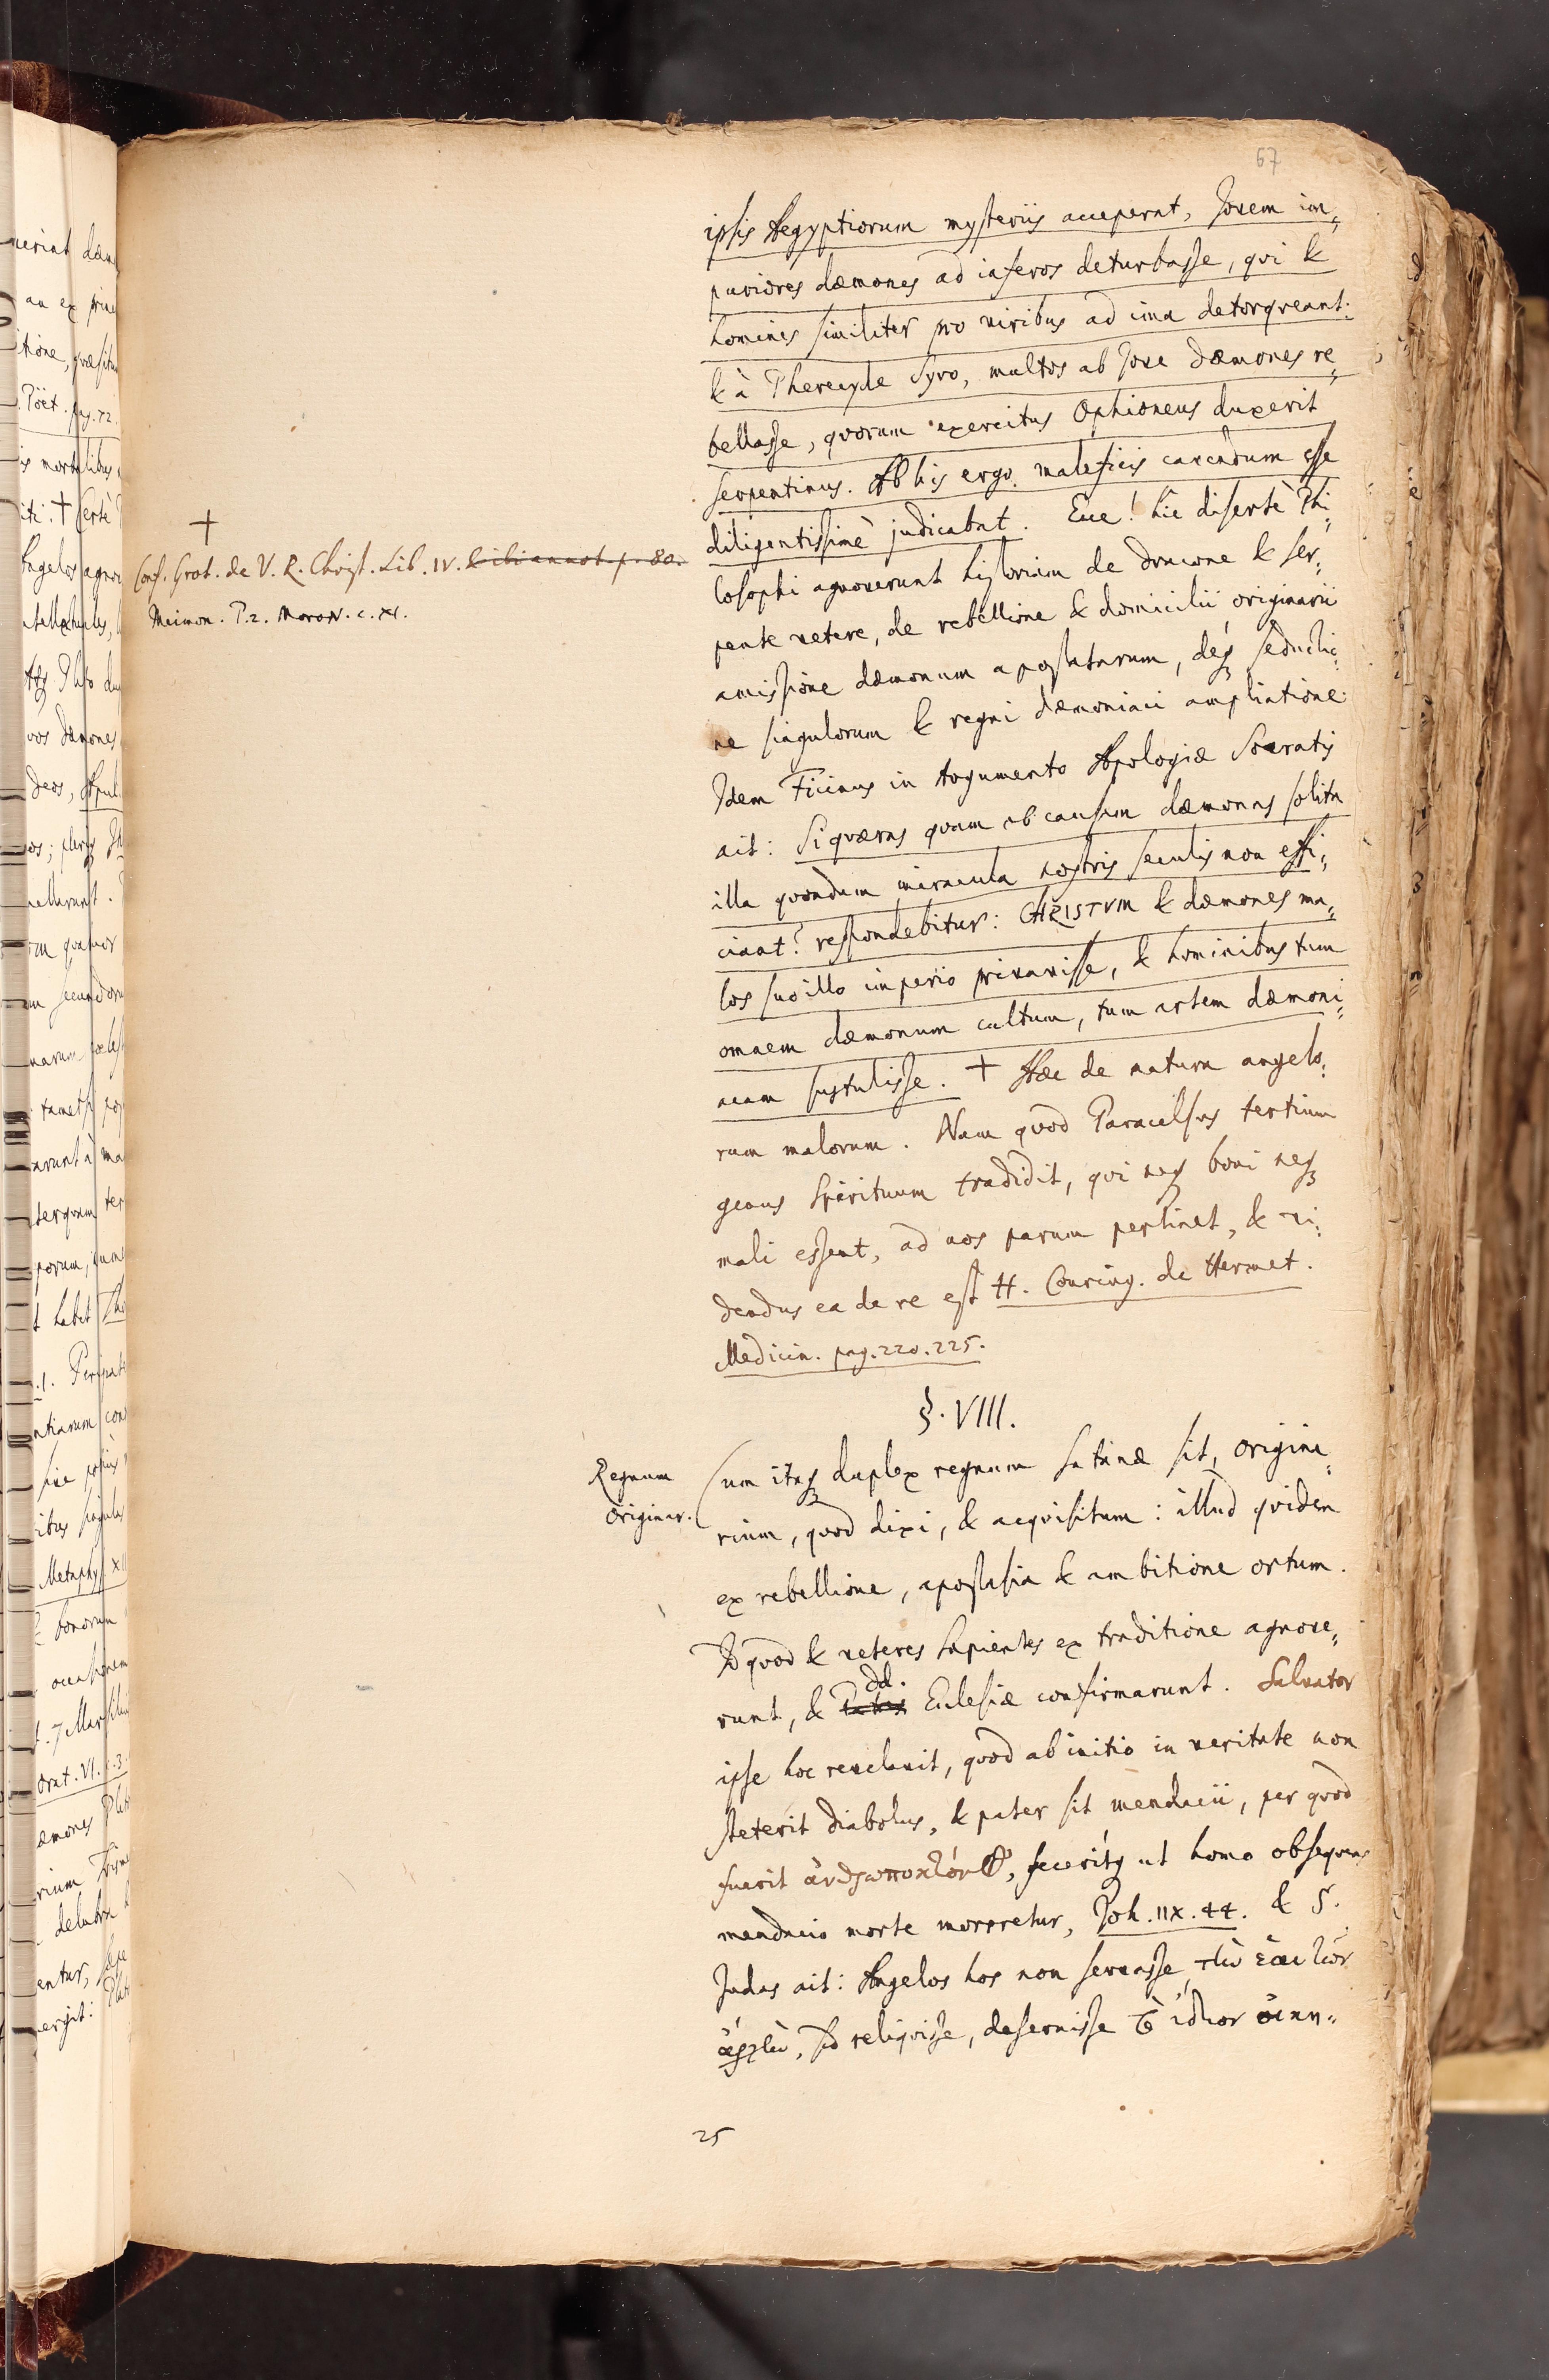 67
ipsis Aegyptiorum mysteriis acceperat, Jovem im„
puriores dæmones ad inferos deturbasse, qvi &
homines similiter pro viribus ad ima detorqveant:
& à Pherecyde Syro, multos ab Jove Dæmones re„
bellasse, qvorum exercitus Ophioneus duxerit
serpentinus. Ab his ergo maleficis cavendum esse
diligentissimè judicabat. Ecce! hîc disertè Phi„
losophi agnoverunt historiam de dracone & ser„
pente vetere, de rebellione & domicilii originarii
amissione dæmonum apostatarum, deqꝫ seductio„
ne singulorum & regni dæmoniaci ampliatione
Idem Ficinus in Argumento Apologiæ Socratis
ait: Si qværas qvam ob causam dæmonas solita
illa qvondam miracula nostris seculis non effi„
ciant? respondebitur: CHRISTVM & dæmones ma„
los suo illo imperio privavisse, & hominibus tum
omnem dæmonum cultum, tum artem dæmoni„
acam sustulisse. † Hæc de natura angelo„
rum malorum. Nam qvod Paracelsus tertium
genus Spirituum tradidit, qvi neqꝫ boni neqꝫ
mali essent, ad nos parum pertinet, & vi„
dendus ea de re est H. Conring. de Hermet.
Medicin. pag. 220. 225.
†
Conf. Grot. de V. R. Christ. Lib. IV. & ibi annot. p. 80.
Meimon. P. 2. MoroN. c. XI.
§. VIII.
Regnum
originar.
Cum itaqꝫ duplex regnum Satanæ sit, origina„
rium, qvod dixi, & acqvisitum: illud qvidem
ex rebellione, apostasia & ambitione ortum.
Id qvod & veteres Sapientes ex traditione agnove„
runt, & Patres dd. Ecclesiæ confirmarunt. Salvator
ipse hoc revelavit, qvod ab initio in veritate non
steterit diabolus, & pater sit mendacii, per qvod
fuerit ἀνθρωποκτόνος, feceritqꝫ ut homo obseqvens
mendacio morte moreretur, Joh. IIX. 44. & S.
Judas ait: Angelos hos non servasse τὴν ἑαυτῶν
ἀρχὴν, sed reliqvisse, deseruisse τὸ ἴδιον οἰκη„
25